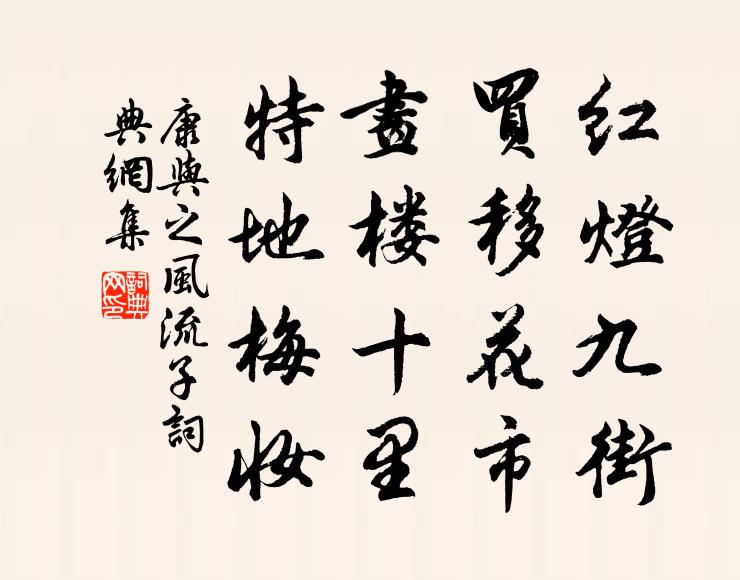 红燈九街
買移花市
畫楼十里
特地梅妆
康與之風流子詞
典網集
詞典
网印